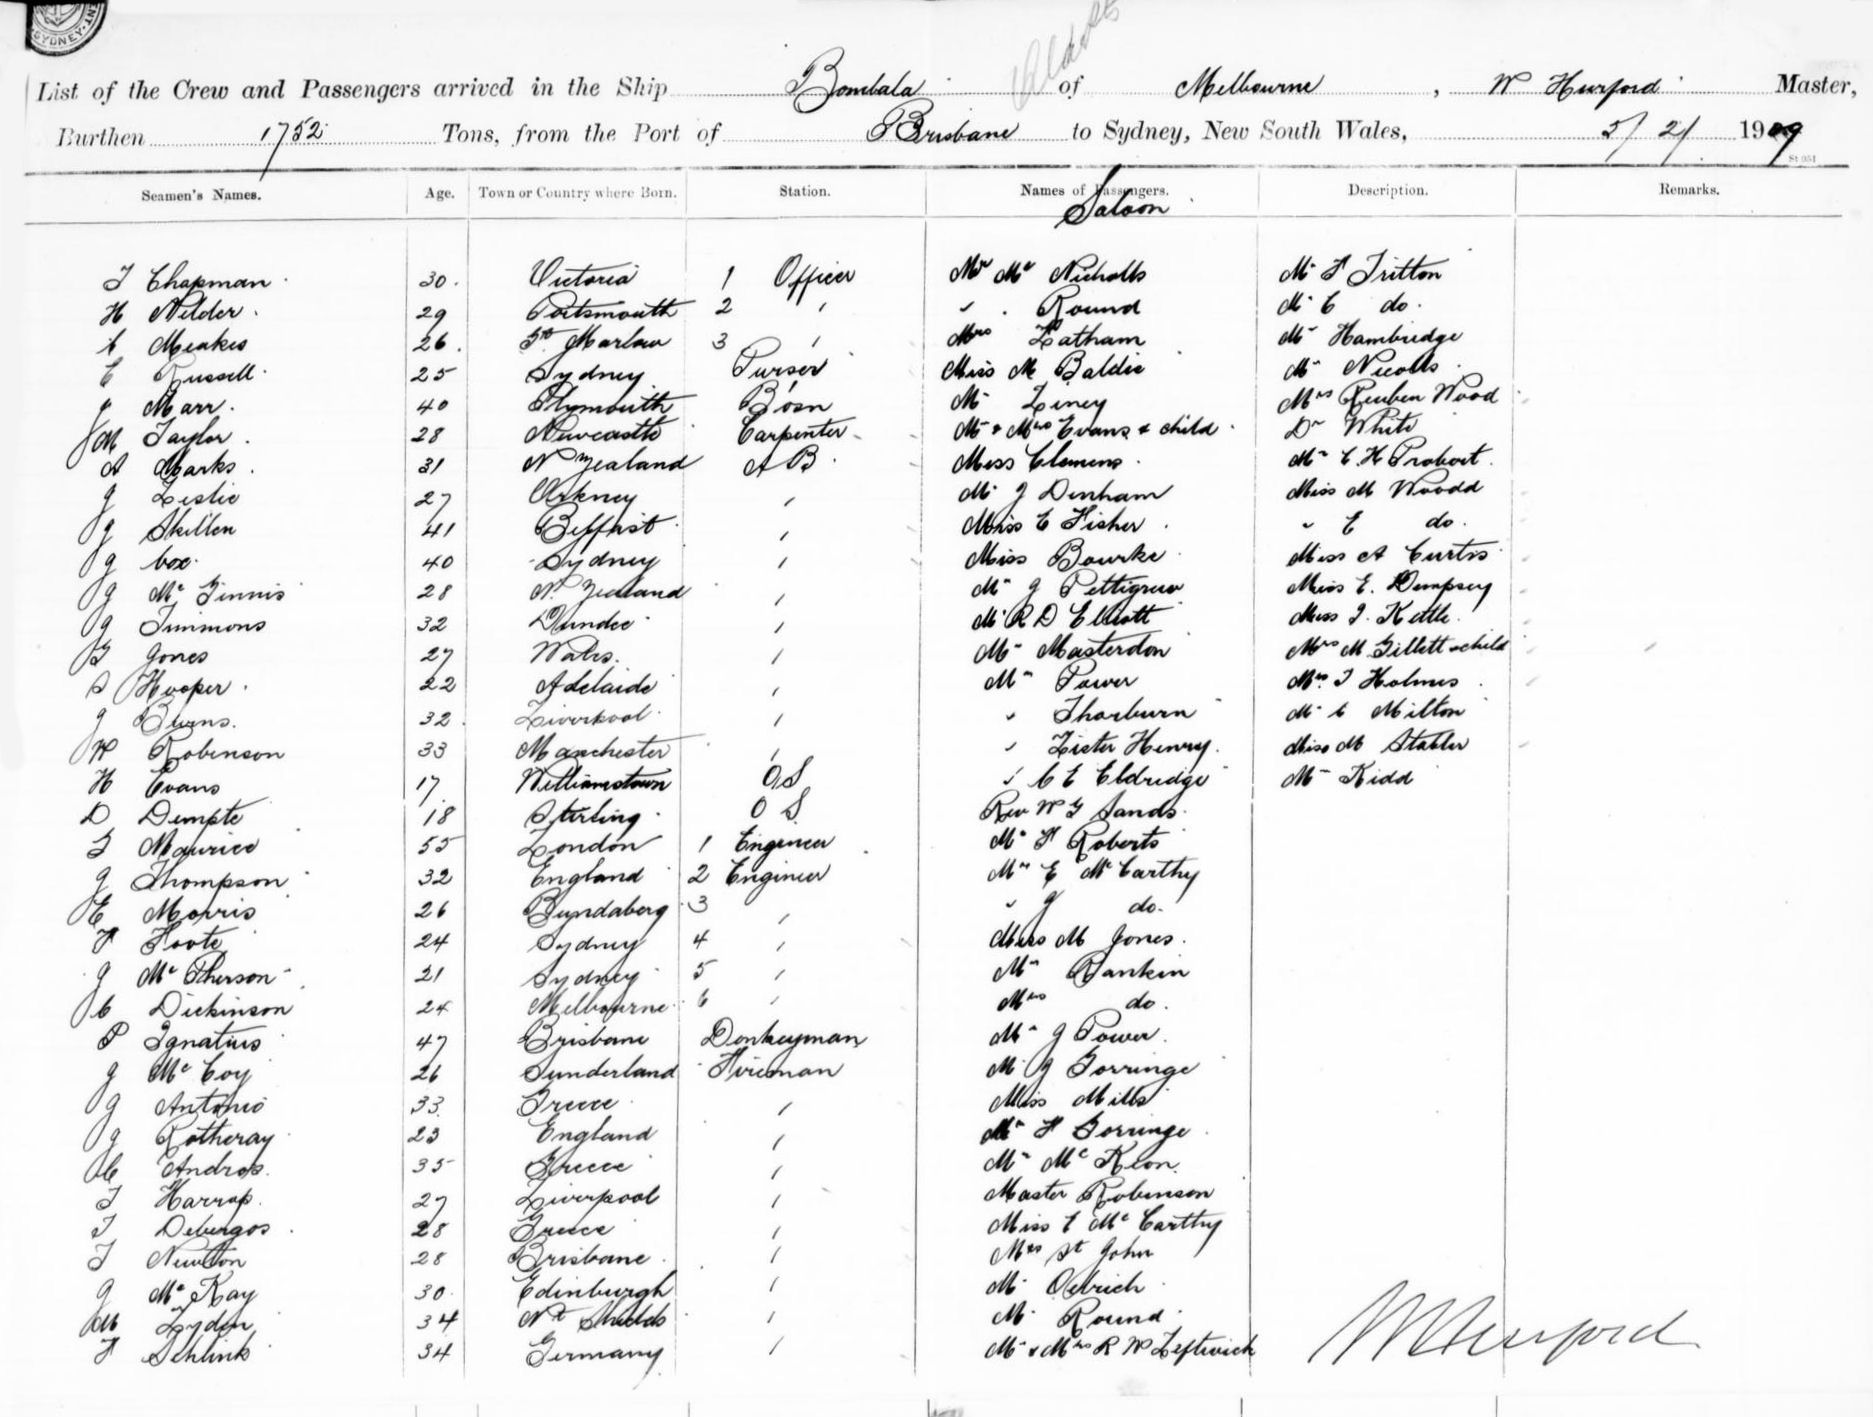 SYDNEY
List of the Crew and Passengers arrived in the Ship Bombala of Melbourne, W Hurford Master,
Burthen 1752 Tons, from the Port of Brisbane to Sydney, New South Wales, 5/2/ 1909
St 051
Seamen's Names. Age. Town or Country where Born. Station. Names of Passengers. Description. Remarks.
Saloon
T Chapman 30 Victoria 1 Officer Mr Mc Nicholls Mr F Tritton
H Nelder 29 Portsmouth 2 " " Round Mr C do.
C Meakes 26 St Marlow 3 " Mrs Latham Mr Hambridge
C Russell 25 Sydney Purser Miss M Baldie Mr Nicolls
J Marr 40 Plymouth Bosn Mr Liney Mrs Reuben Wood
M Taylor 28 Newcastle Carpenter Mr & Mrs Evans & child Dr White
A Marks 31 N Zealand A B Miss Clemens Mr C. H Probort
J Leslie 27 Orkney " Mr J Denham Miss M Woodd
J Skillen 41 Belfast " Miss E Fisher " E do.
J Cox 40 Sydney " Miss Bourke Miss A Curtis
J Mc Ginnis 28 N. Zealand " Mr J Pettigrew Miss E. Dempsey
J Timmons 32 Dundee " Mr R D Elliott Miss I. Kettle
G Jones 27 Wales " Mr Masterdon Mrs M Gillett & child
S Hooper 22 Adelaide " Mr Power Mrs T Holmes
J Burns 32 Liverpool " " Thorburn Mr C Milton
W Robinson 33 Manchester " " Lister Henry Miss M Statler
H Evans 17 Williamstown OS " C E Eldridge Mr Kidd
D Dempte 18 Sterling O S Rev W G Sands
G Maurice 55 London 1 Engineer Mr F Roberts
J Thompson 32 England 2 Engineer Mr E McCarthy
E Morris 26 Bundaberg 3 " " J do.
F Foote 24 Sydney 4 " Miss M Jones
J McPherson 21 Sydney 5 " Mr Rankin
C Dickinson 24 Melbourne 6 " Mrs do.
P Ignatius 47 Brisbane Donkeyman Mr J Power
J McCoy 26 Sunderland Fireman Mr J Gorringe
J Antonio 33 Greece " Miss Mills
J Rotheray 23 England " Mr F Gorringe
C Andros 35 Greece " Mr McKeon
T Harrap 27 Liverpool " Master Robinson
T Debergos 28 Greece " Miss E McCarthy
T Newton 28 Brisbane " Mrs St John
J McKay 30 Edinburgh " Mr Oelrich
M Lyden 34 Nt Shields " Mr Round
F Schlink 34 Germany " Mr & Mrs R W Leftwich
W Hurford